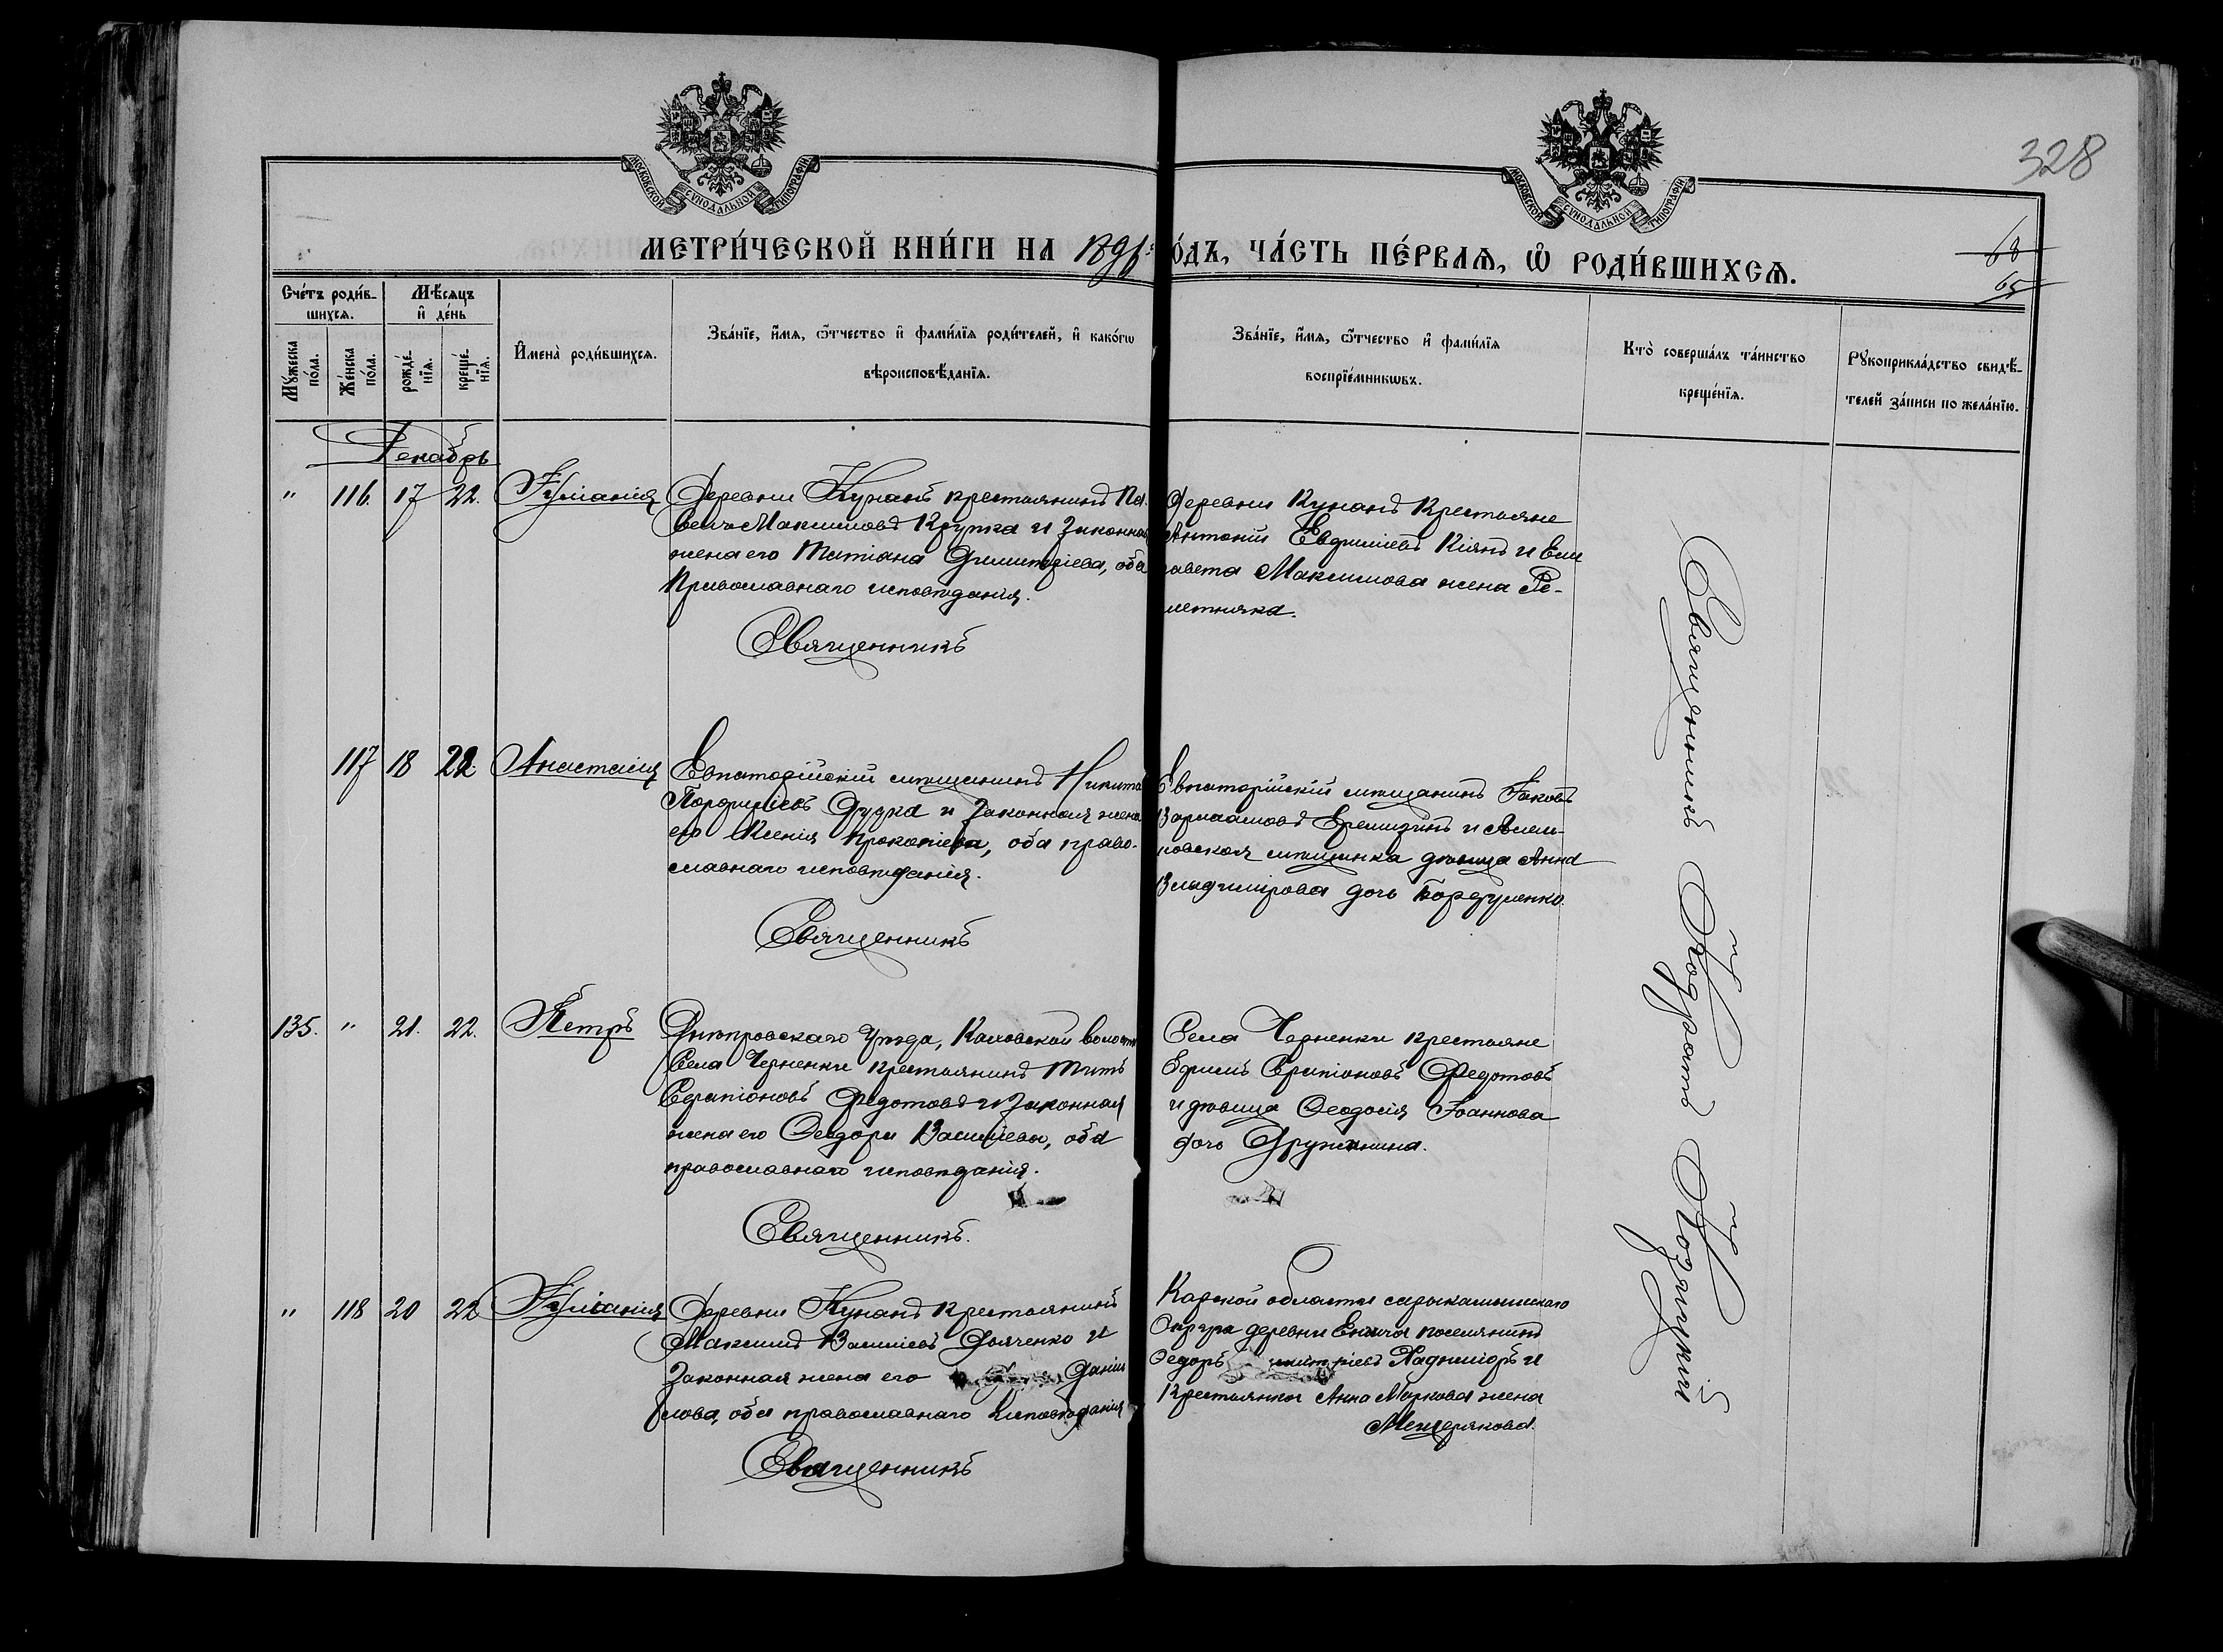 328
МОСКОВСКОЙ СѴНОДАЛЬНОЙ ТИПОГРАФІИ
МОСКОВСКОЙ СѴНОДАЛЬНОЙ ТИПОГРАФІИ
МЕТРИ́ЧЕСКОЙ КНИ́ГИ НА 1896 О́ДЪ, ЧА́СТЬ ПЕ́РВАѦ, Ѡ҆ РОДИ́ВШИХСѦ.
68
65
Сче́тъ роди́в-
шихсѧ.
Мѣ́сяцъ
и҆ де́нь
Мꙋ́жеска
по́ла.
Же́нска
по́ла.
рожде́-
нїѧ.
креще́-
нїѧ.
И҆мена̀ роди́вшихсѧ.
Зва́нїе, и҆́мѧ, ѻ҆́тчество и҆ фами́лїѧ роди́телей, и҆ како́гѡ
вѣроисповѣ́данїѧ.
Зва́нїе, и҆́мѧ, ѻ҆́тчество и҆ фами́лїѧ
воспрїе́мникѡвъ.
Кто̀ соверша́лъ та́инство
креще́нїѧ.
Рꙋкоприкла́дство свидѣ́-
телей за́писи по жела́нїю.
Декабрь
" 116. 17 22. Іуліанія
Деревни Кунанъ крестьянинъ Па-
велъ Максимовъ Крупка и законная
жена его Татіана Димитріева, оба
Православнаго исповѣданія.
Священникъ
Деревни Кунанъ Крестьяне
Антоній Евфиміевъ Кіянъ и Ели
завета Максимова жена Ре-
метняка.
117 18 22. Анастасія
Евпаторійскій мѣщанинъ Никита
Порфиріевъ Дудка и законная жена
его Ксенія Прокопіева, оба право-
славнаго исповѣданія.
Священникъ
Евпаторійскій мѣщанинъ Іаковъ
Варлаамовъ Еремизинъ и Алеш-
ковская мѣщанка дѣвица Анна
Владимірова дочь Бордуленко.
135. " 21. 22. Петръ
Днѣпровскаго Уѣзда, Каховской волости
Села Черненки крестьянинъ Титъ
Серапіоновъ Федотовъ и законная
жена его Ѳеодора Василіева, оба
православнаго исповѣданія.
Священникъ.
Села Черненки крестьяне
Ефимъ Серапіоновъ Федотовъ
и дѣвица Ѳеодосія Іоаннова
дочь Дружинина.
" 118 20 22 Іуліанія
Деревни Кунанъ крестьянинъ
Максимъ Василіевъ Дьяченко и
законная жена его Даніи
лова, оба православнаго исповѣданія
Священникъ
Карской области сарыкамышскаго
Округа деревни поселянинъ
Ѳедоръ и
Крестьянка Анна Маркова жена
Мещерякова.
Священникъ Кодратъ Козицкій